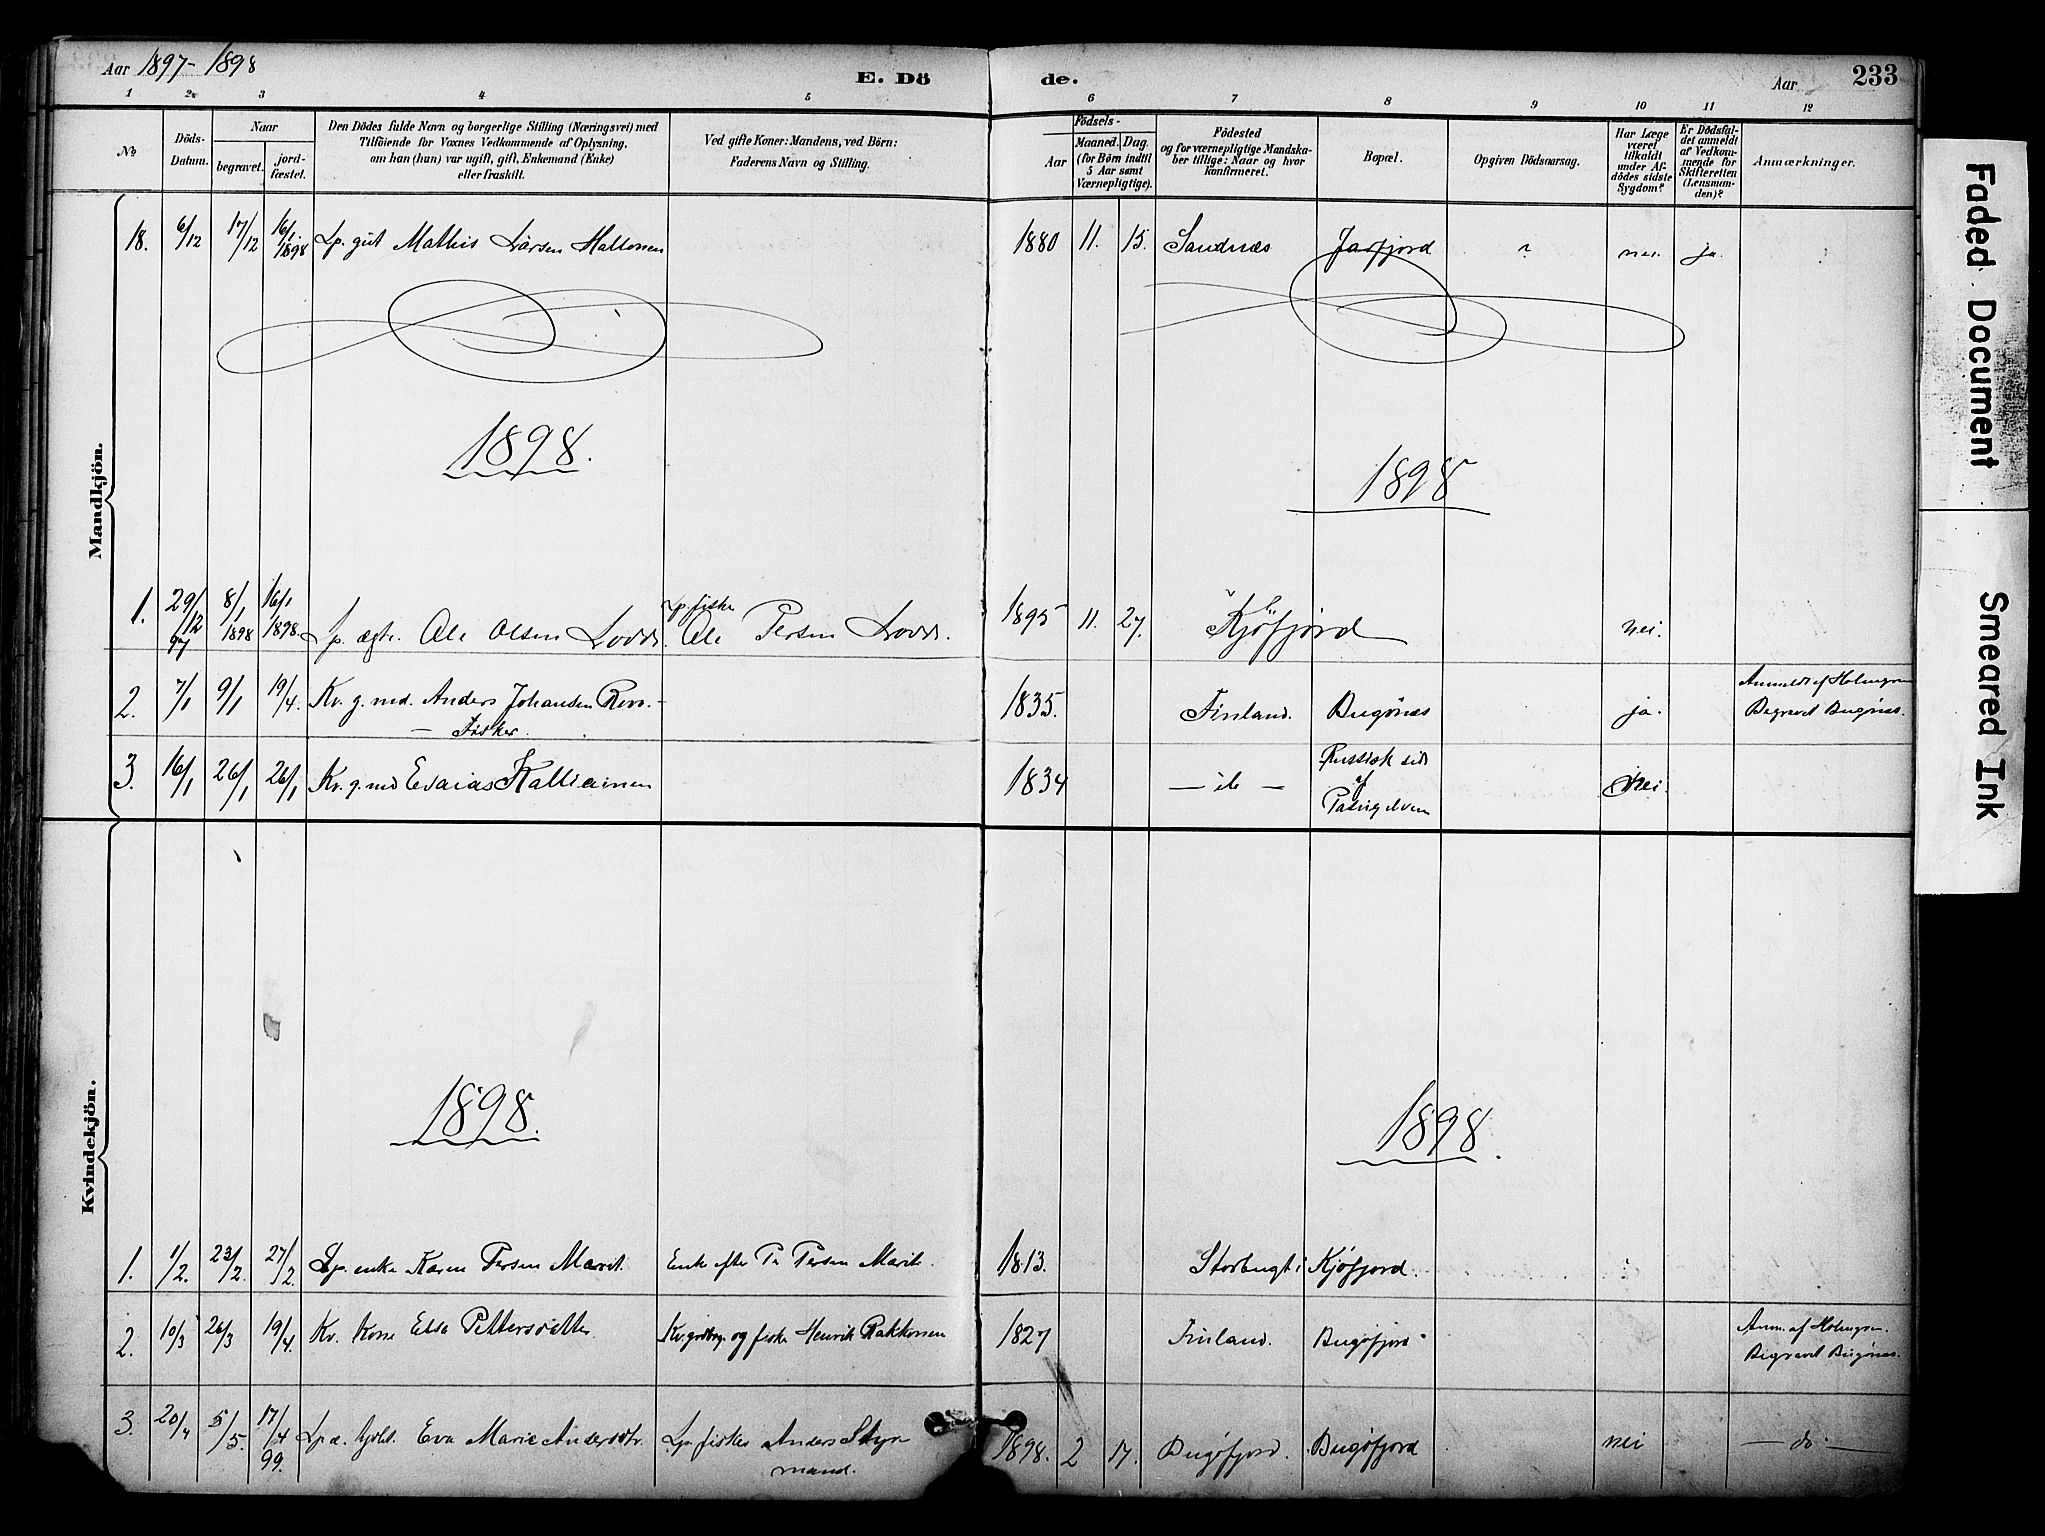 Aar 1897-1898
E. Dö de.
Aar 233
1 2 3 4 5 6 7 8 9 10 11 12
No
Döds-
Datum.
Naar
begravet.
jord-
fæstet.
Den Dödes fulde Navn og borgerlige Stilling (Næringsvei) med
Tilföiende for Voxnes Vedkommende af Oplysning,
om han (hun) var ugift, gift, Enkemand (Enke)
eller fraskilt.
Ved gifte Koner: Mandens, ved Börn:
Faderens Navn og Stilling.
Födsels-
Aar
Maaned. Dag.
(for Börn indtil
5 Aar samt
Værnepligtige).
Födested
og for værnepligtige Mandska-
ber tillige: Naar og hvor
konfirmeret.
Bopæl.
Opgiven Dödsaarsag.
Har Læge
været
tilkaldt
under Af-
dödes sidste
Sygdom?
Er Dödsfal-
det anmeldt
af Vedkom-
mende for
Skifteretten
(Lensman-
den)?
Anmærkninger.
Mandkjön.
18. 6/12 17/12 16/1 1898 Lp. gut Mathis Larsen Hallonen 1880 11. 15. Sandnæs Jarfjord ? nei. ja.
1898. 1898
1. 29/12 97 8/1 1898 16/1 1898. Lp. ægte. Ole Olsen Lp. fisker Ole Persen 1895 11. 27. Kjöfjord nei.
2. 7/1 9/1 19/4. Kv. g. md. Anders Johansen 1835. Finland. Bugönæs ja. Anmeldt af Holmgren
— Fisker. Begravet Bugönæs.
3. 16/1 26/1 26/1 Kv. g. md Esaias Kalliainen 1834 — do — Russisk side
af
Pasvigelven nei.
Kvindekjön.
1898. 1898.
1. 1/2. 23/2. 27/2. Lp. enke Karen Persen Marit. Enke efter Pr Persen Marit. 1813. Storbugt i Kjöfjord.
2. 10/3 26/3 19/4. Kv. Kone Elsa Pettersdatter og fisker Henrik Rakkonen 1827 Finland. Bugöfjord Anm. af Holmgren.
Begravet Bugönæs.
3. 20/4 5/5. 17/4 99. Eva Marie Andersdtr. Lp. fisker Anders Styr
mand. 1898. 2 17. Bugöfjord. Bugöfjord nei — do. —
Faded Document
Smeared Ink